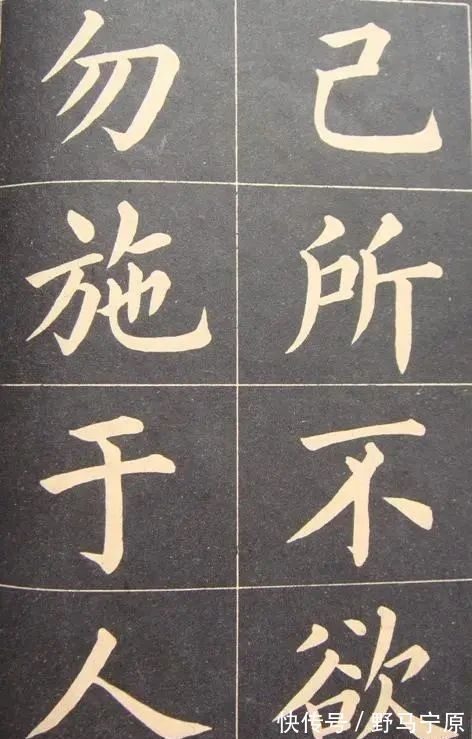 己所不欲
勿施于人
快传号／野马宁原